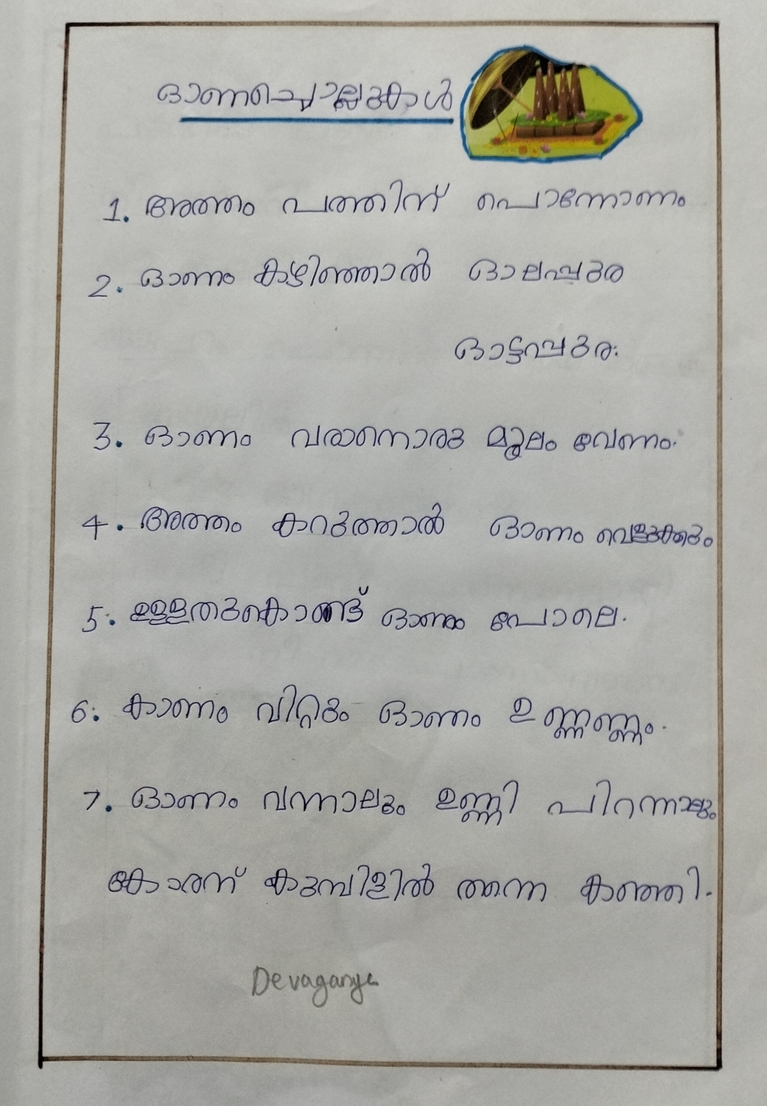 ഓണച്ചൊല്ലുകൾ
1. അത്തം പത്തിന് പൊന്നോണം
2. ഓണം കഴിഞ്ഞാൽ ഓലപ്പുര
ഓട്ടപ്പുര.
3. ഓണം വരാനൊരു മൂലം വേണം.
4. അത്തം കറുത്താൽ ഓണം വെളുക്കും
5. ഉള്ളതുകൊണ്ട് ഓണം പോലെ.
6. കാണം വിറ്റും ഓണം ഉണ്ണണ്ണം.
7. ഓണം വന്നാലും ഉണ്ണി പിറന്നാലും
കോരന് കുമ്പിളിൽ തന്നെ കഞ്ഞി.
Devaganga